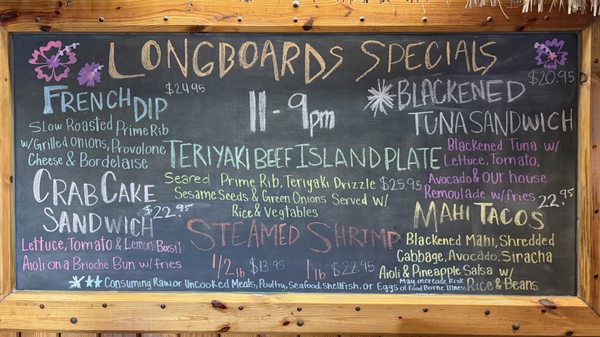 LONGBOARDS SPECIALS
11-9pm
FRENCH DIP
$24.95
SLOW ROASTED PRIME RIB
W/ GRILLED ONIONS, PROVOLONE
CHEESE & BORDELAISE
CRAB CAKE
SANDWICH
$22.95
LETTUCE, TOMATO & LEMON BASIL
AIOLI ON A BRIOCHE BUN W/ FRIES
TERIYAKI BEEF ISLAND PLATE
SEARED PRIME RIB, TERIYAKI DRIZZLE $25.95
SESAME SEEDS & GREEN ONIONS SERVED W/
RICE & VEGTABLES
STEAMED SHRIMP
1/2 lb $13.95 1 lb $22.95
$20.95
*BLACKENED
TUNA SANDWICH
BLACKENED TUNA W/
LETTUCE, TOMATO,
AVOCADO & OUR HOUSE
REMOULADE W/ FRIES
22.95
MAHI TACOS
BLACKENED MAHI, SHREDDED
CABBAGE, AVOCADO, SIRACHA
AIOLI & PINEAPPLE SALSA W/
RICE & BEANS
*** CONSUMING RAW OR UNCOOKED MEATS, POULTRY, SEAFOOD, SHELLFISH, OR EGGS MAY INCREASE RISK
OF FOOD BORNE ILLNESS